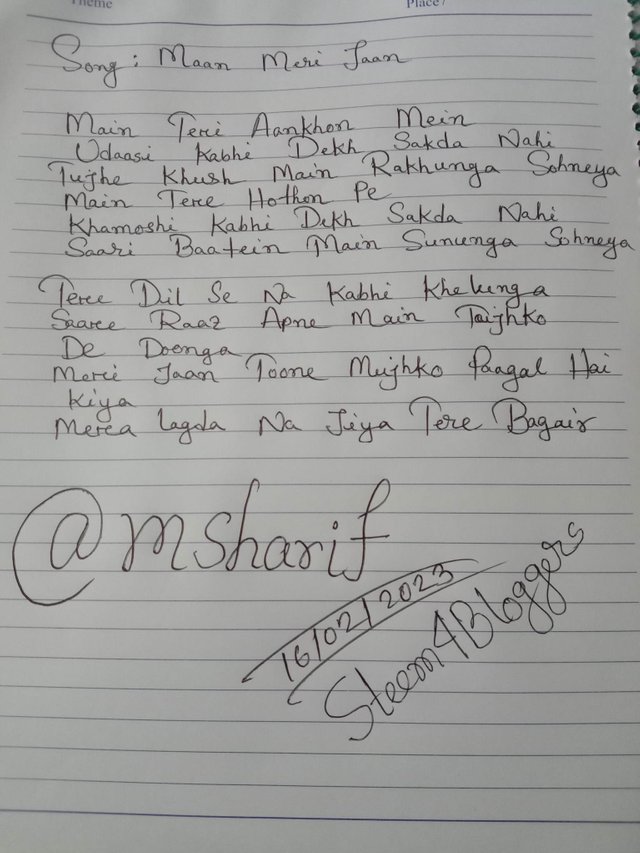 Theme
Place/
Song: Maan Meri Jaan
Main Teri Aankhon Mein
Udaasi Kabhi Dekh Sakda Nahi
Tujhe Khush Main Rakhunga Sohneya
Main Tere Hothon Pe
Khamoshi Kabhi Dekh Sakda Nahi
Saari Baatein Main Sununga Sohneya
Teree Dil Se Na Kabhi Khelunga
Saaree Raaz Apne Main Tujhko
De Doonga
Meri Jaan Toone Mujhko Paagal Hai
Kiya
Meraa Lagda Na Jiya Tere Bagair
@msharif
16/02/2023
Steem4Bloggers